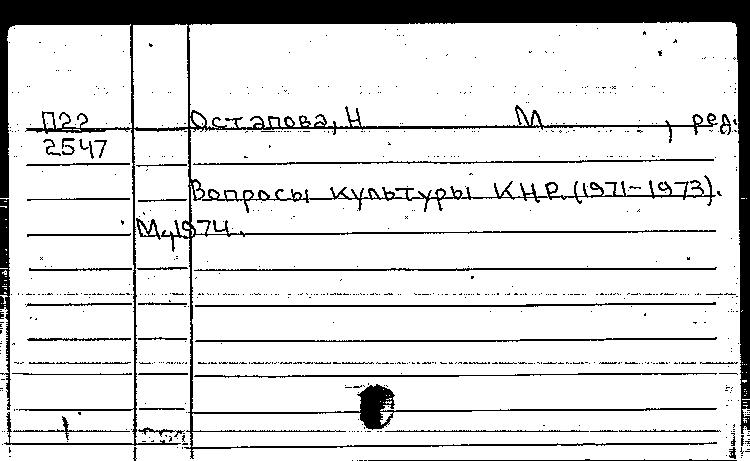 П22 Остапова, Н М , ред.
2547
Вопросы культуры К.Н.Р. (1971-1973).
М., 1974.